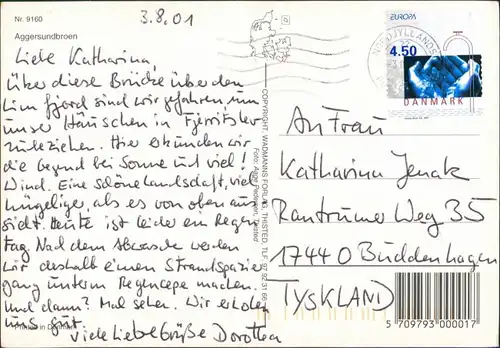 Nr. 9160
Aggersundbroen
3.8.01
Liebe Katharina,
über diese Brücke über den
Lim fjord sind wir gefahren, um
unser Häuschen in Fjerritslev
zu beziehen. Hier erkunden wir
die Gegend bei Sonne und viel!
Wind. Eine schöne Landschaft, viel
hügeliger, als es von oben aus
sieht. Heute ist leider ein Regen
tag. Nach dem Abwasch werden
wir deshalb einen Strandspazier
gang unterm Regencape machen.
und dann? Mal sehen. Wir erholen
uns gut.
Viele liebe Grüße Dorothea
Printed in Denmark
COPYRIGHT: WADMANNS FORLAG, THISTED, TLF. 97 92 31 66
Foto: Aage Pedersen, Thisted
NORDJYLLANDS
EUROPA
4.50
DANMARK
An Frau
Katharina Jenak
Rantrumer Weg 35
17440 Buddenhagen
TYSKLAND
5 709793 000017